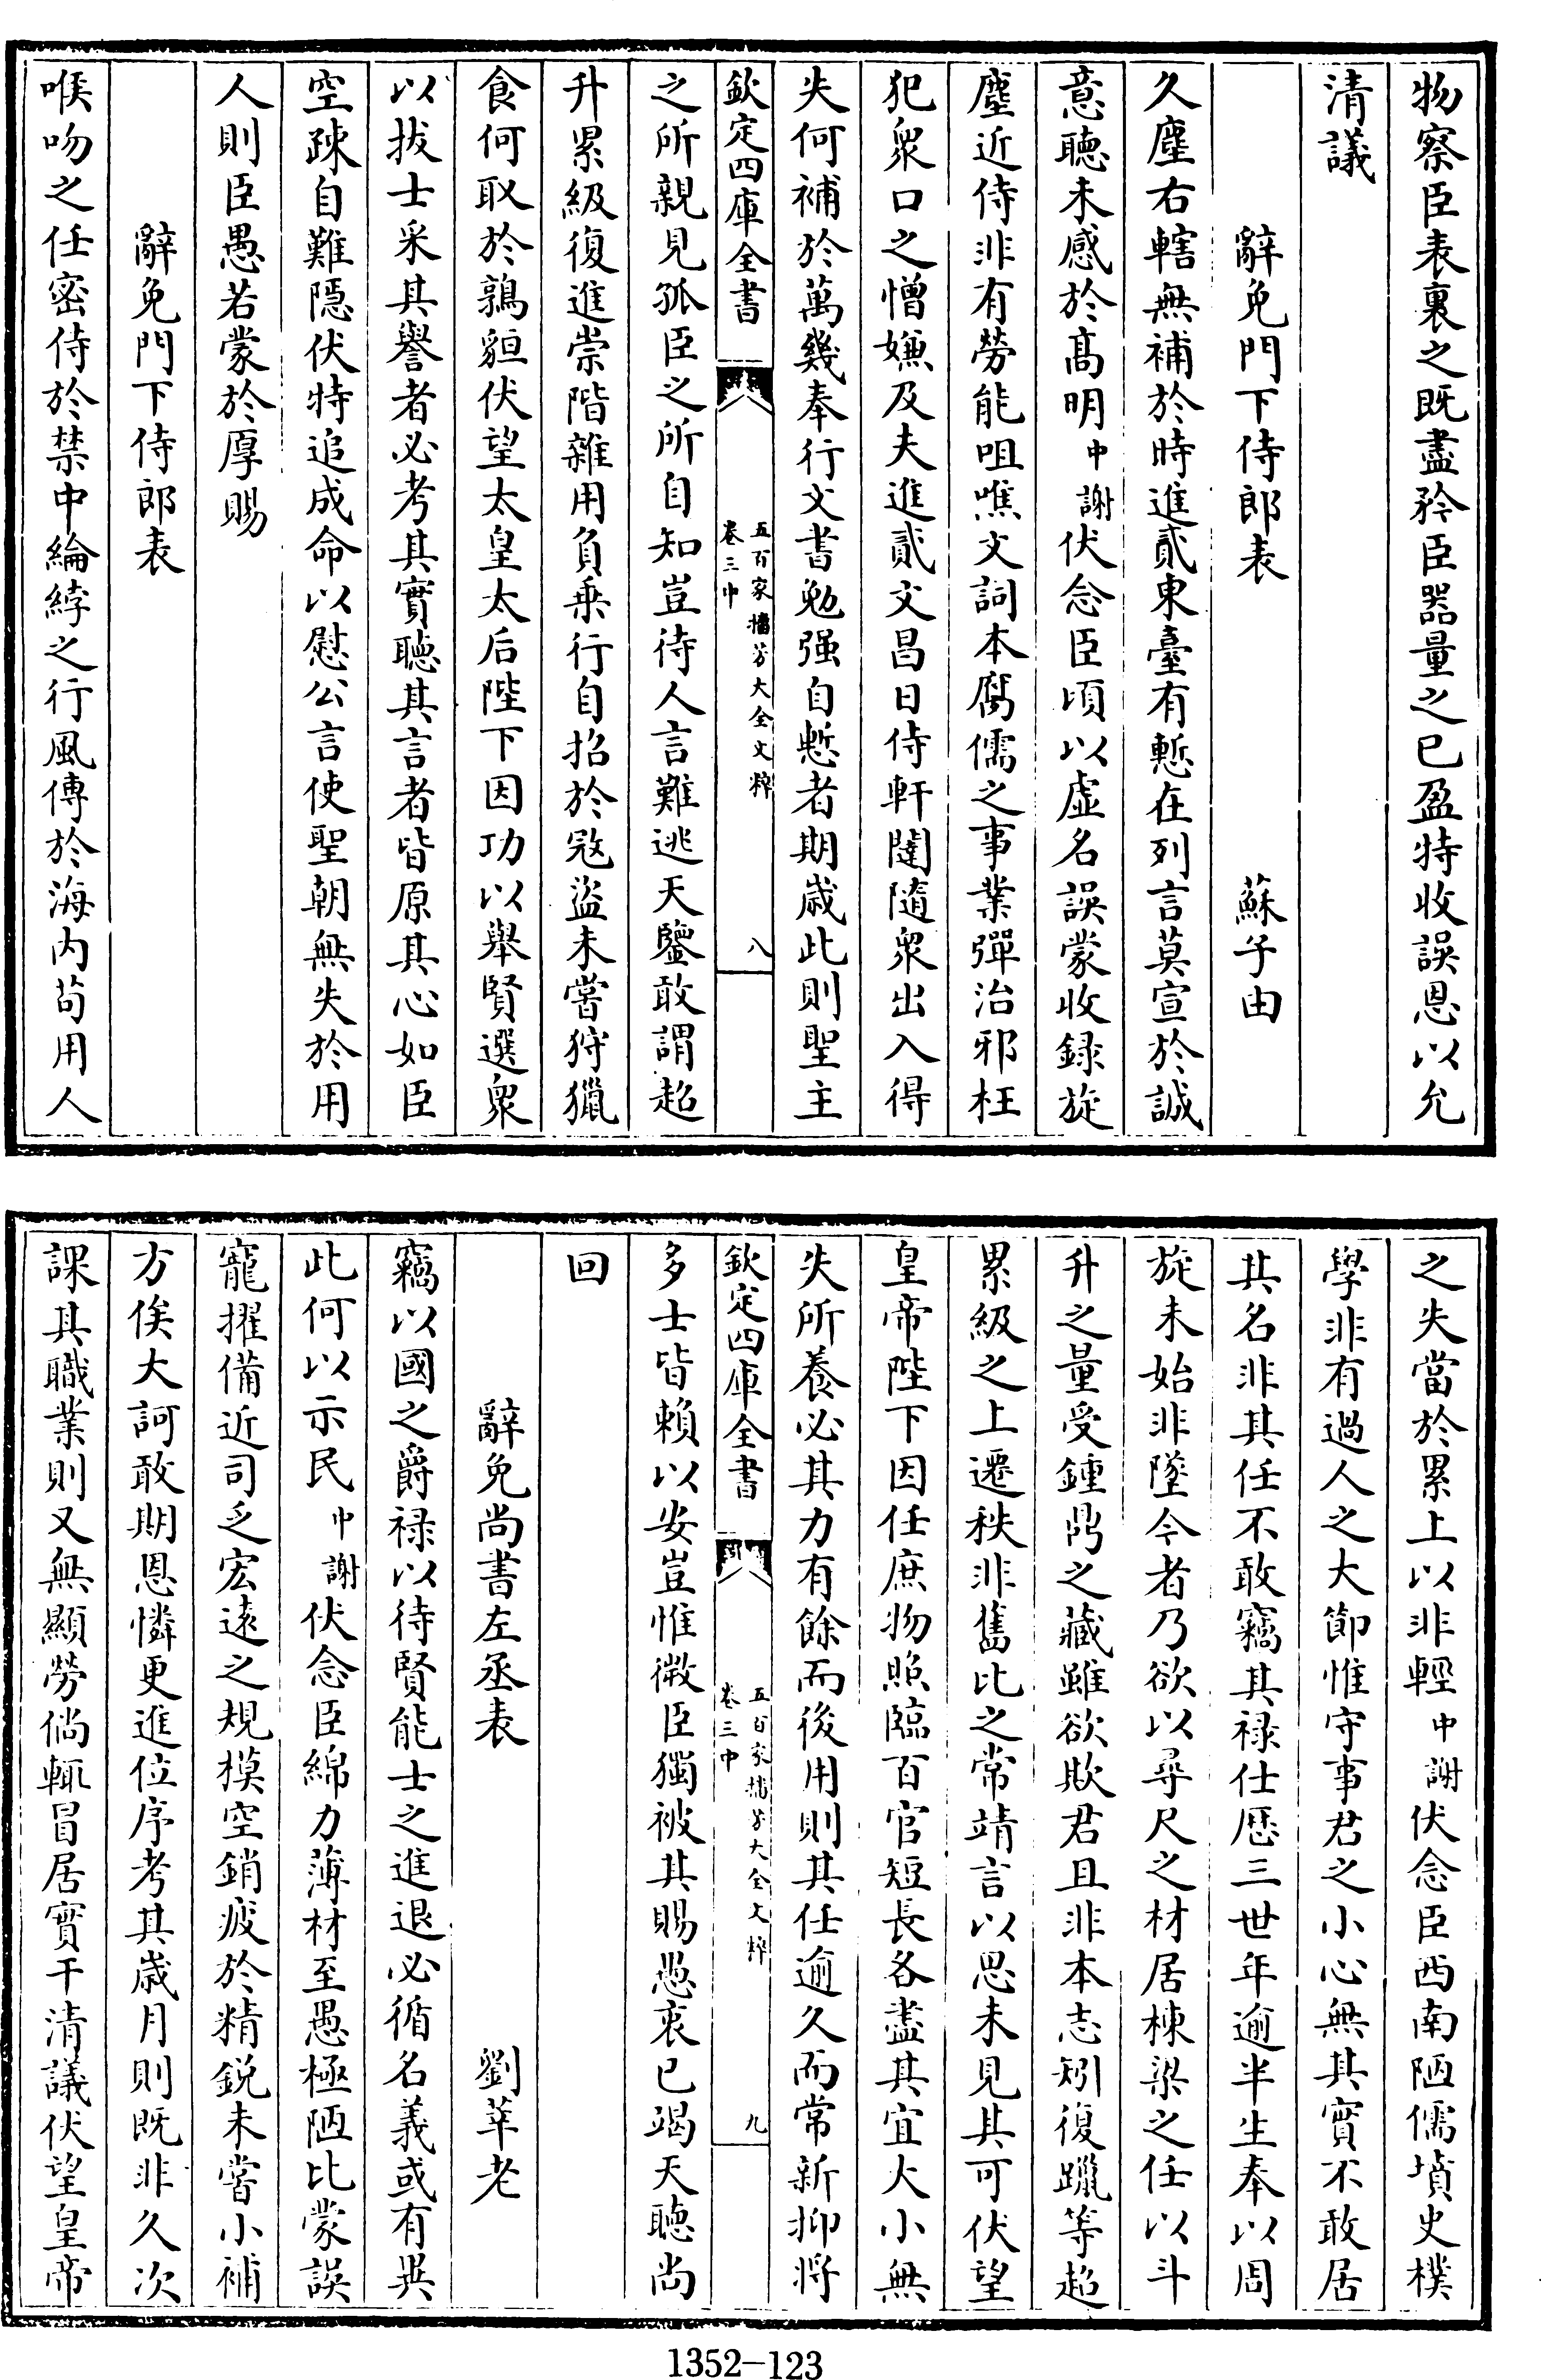 物察臣表裏之既盡矜臣器量之已盈特收誤恩以允
清議
辭免門下侍郎表 蘇子由
久塵右轄無補於時進貳東臺有慙在列言莫宣於誠
意聽未感於高明中謝伏念臣頃以虛名誤蒙收録旋
塵近侍非有勞能咀噍文詞本腐儒之事業彈治邪枉
犯衆口之憎嫌及夫進貳文昌日侍軒闥隨衆出入得
失何補於萬幾奉行文書勉强自慙者期歲此則聖主
欽定四庫全書 五百家播芳大全文粹 卷三中 八
之所親見孤臣之所自知豈待人言難逃天鑒敢謂超
升累級復進崇階雜用負乗行自招於冦盜未嘗狩獵
食何取於鶉貆伏望太皇太后陛下因功以舉賢選衆
以拔士采其譽者必考其實聽其言者皆原其心如臣
空疎自難隱伏特追成命以慰公言使聖朝無失於用
人則臣愚若蒙於厚賜
辭免門下侍郎表
喉吻之任密侍於禁中綸綍之行風傳於海内苟用人
之失當於累上以非輕中謝伏念臣西南陋儒墳史樸
學非有過人之大節惟守事君之小心無其實不敢居
其名非其任不敢竊其禄仕歴三世年逾半生奉以周
旋未始非墜今者乃欲以尋尺之材居棟梁之任以斗
升之量受鍾鼎之藏雖欲欺君且非本志矧復躐等超
累級之上遷秩非舊比之常靖言以思未見其可伏望
皇帝陛下因任庶物照臨百官短長各盡其宜大小無
失所養必其力有餘而後用則其任逾久而常新抑將
欽定四庫全書 五百家播芳大全文粹 卷三中 九
多士皆賴以安豈惟微臣獨被其賜愚衷已竭天聽尚
回
辭免尚書左丞表 劉莘老
竊以國之爵禄以待賢能士之進退必循名義或有異
此何以示民中謝伏念臣綿力薄材至愚極陋比蒙誤
寵擢備近司乏宏遠之規模空銷疲於精鋭未嘗小補
方俟大訶敢期恩憐更進位序考其歲月則既非久次
課其職業則又無顯勞倘輒冒居實干清議伏望皇帝
1352-123